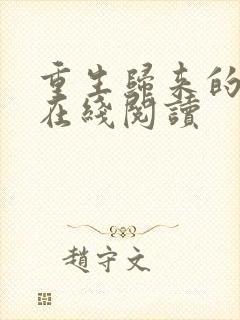 重生歸来的
在綫閱讀
趙守文